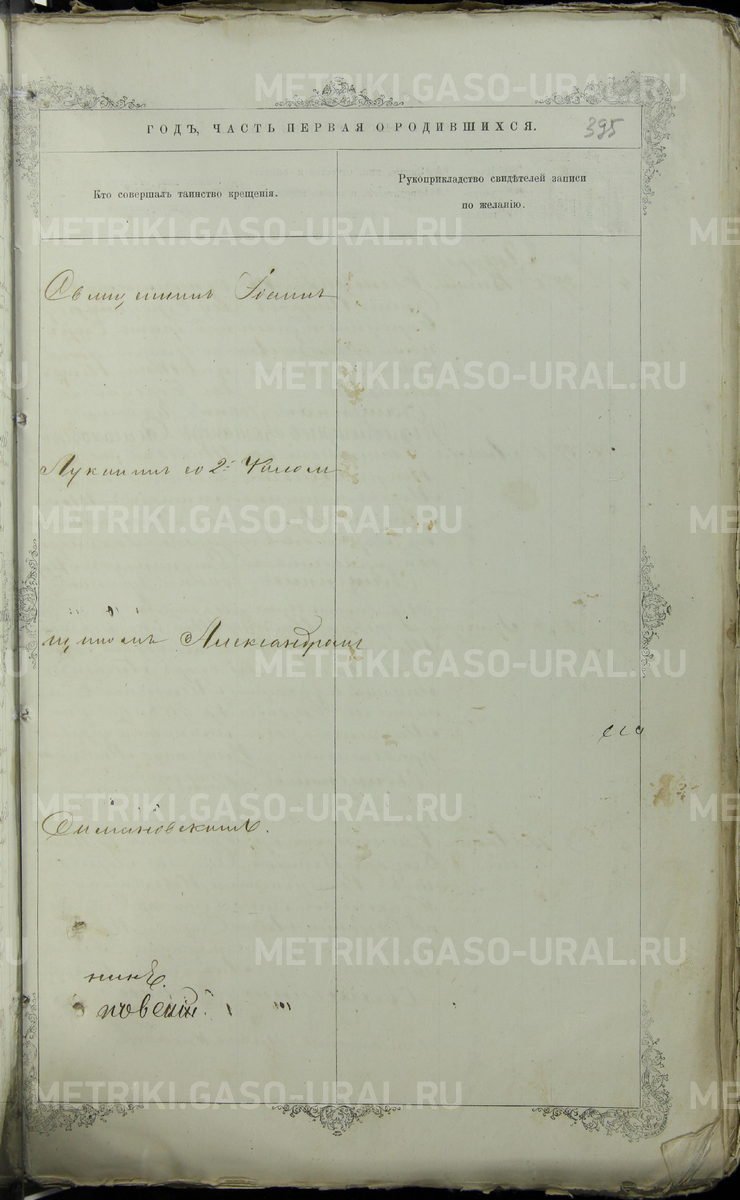 METRIKI.GASO-URAL.RU
ГОДЪ, ЧАСТЬ ПЕРВАЯ О РОДИВШИХСЯ.
395
Кто совершалъ таинство крещенія.
Рукоприкладство свидѣтелей записи
по желанію.
METRIKI.GASO-URAL.RU
METRI
Священникъ Іоаннъ
METRIKI.GASO-URAL.RU
Луканинъ со 2.
METRIKI.GASO-URAL.RU
ME
Александромъ
METRIKI.GASO-URAL.RU
METRIKI.GASO-URAL.RU
ME
Симановскимъ.
METRIKI.GASO-URAL.RU
нинъ.
новскій.
METRIKI.GASO-URAL.RU
ME